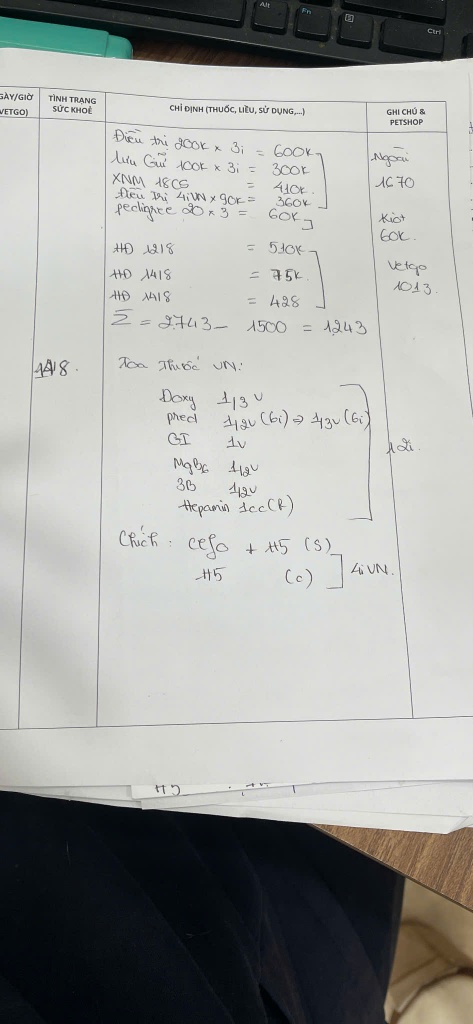 Alt
Fn
Ctrl
GÀY/GIỜ
VETGO)
TÌNH TRẠNG
SỨC KHOẺ
CHỈ ĐỊNH (THUỐC, LIỀU, SỬ DỤNG,...)
GHI CHÚ &
PETSHOP
Điều trị 200k x 3i = 600k
Lưu Giữ 100k x 3i = 300k
XNM 18CS = 410k
Điều Trị 4iVN x 90k = 360k
pedigree 20 x 3 = 60k
Ngoài
1670
Kiot
60k.
HĐ 1218 = 510k
HĐ 1418 = 75k
HĐ 1418 = 428
Vetgo
1013
Σ = 2743 - 1500 = 1243
1418.
Toa Thuốc VN:
Doxy 1/3v
pred 1/2v (6i) => 1/3v (6i)
GI 1v
MgB6 1/2v
3B 1/2v
Hepamin 1cc (R)
12i.
Chích: cefo + H5 (S)
H5 (c)
4iVN.
H5